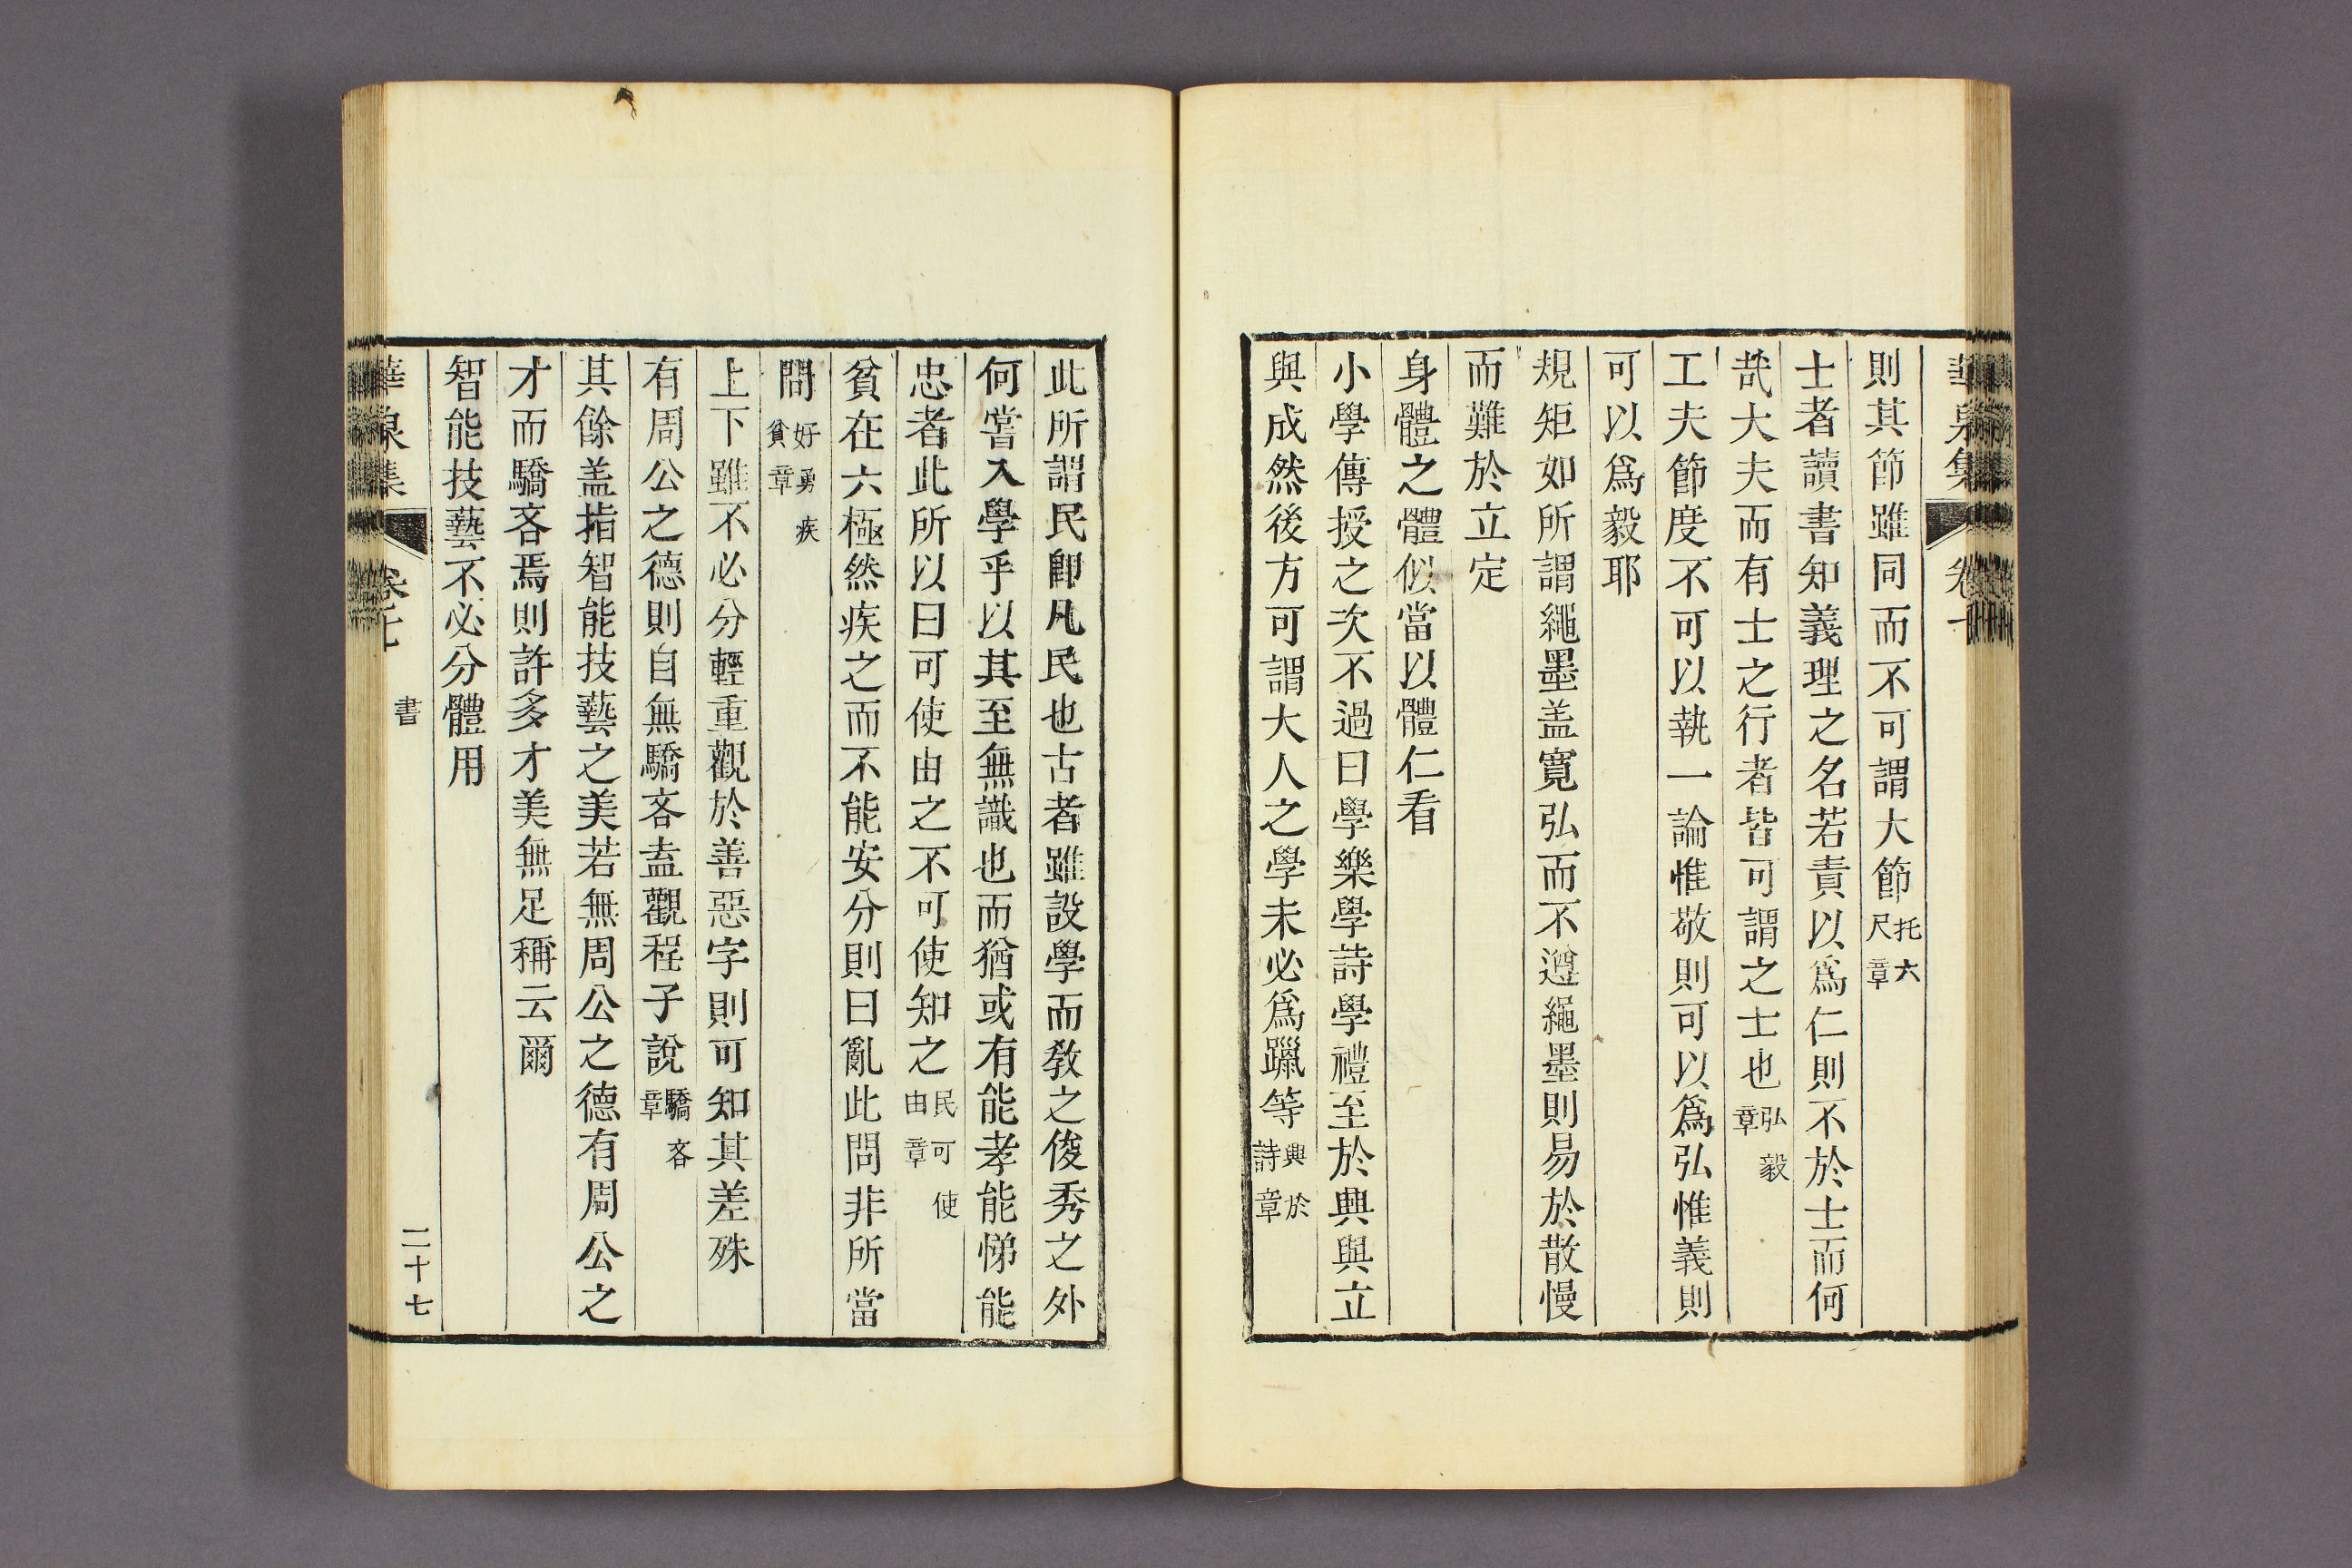 則其節雖同而不可謂大節托六尺章
士者讀書知義理之名若責以爲仁則不於士而何
哉大夫而有士之行者皆可謂之士也弘毅章
工夫節度不可以執一論惟敬則可以爲弘惟義則
可以爲毅耶
規矩如所謂繩墨盖寬弘而不遵繩墨則易於散慢
而難於立定
身體之體似當以體仁看
小學傳授之次不過曰學樂學詩學禮至於興與立
與成然後方可謂大人之學未必爲躐等興於詩章
此所謂民卽凡民也古者雖設學而敎之俊秀之外
何嘗入學乎以其至無識也而猶或有能孝能悌能
忠者此所以曰可使由之不可使知之民可使由章
貧在六極然疾之而不能安分則曰亂此問非所當
問好勇疾貧章
上下雖不必分輕重觀於善惡字則可知其差殊
有周公之德則自無驕吝盍觀程子說驕吝章
其餘盖指智能技藝之美若無周公之德有周公之
才而驕吝焉則許多才美無足稱云爾
智能技藝不必分體用
華泉集 卷七 書 二十七